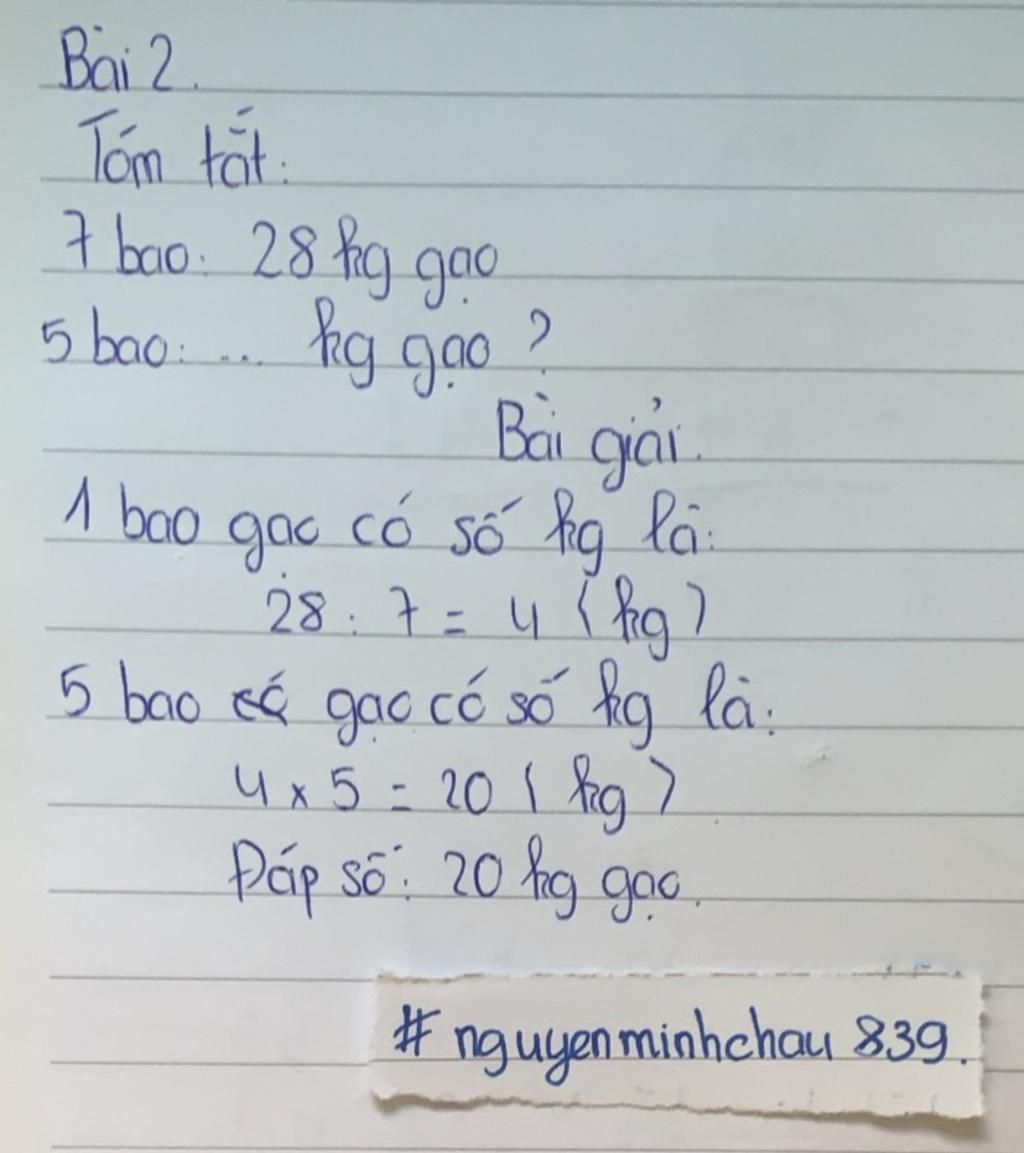 Bài 2.
Tóm tắt:
7 bao: 28 kg gạo
5 bao: ... kg gạo?
Bài giải.
1 bao gạo có số kg là:
28 : 7 = 4 (kg)
5 bao gạo có số kg là:
4 x 5 = 20 (kg)
Đáp số: 20 kg gạo.
# nguyenminhchau 839.